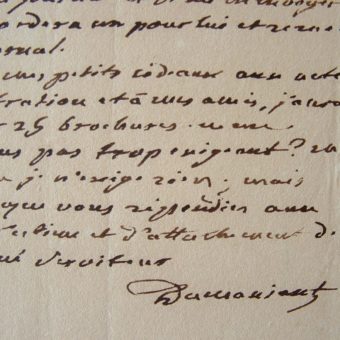 ordera un pour lui et
mes petits cadeaux aux acte
tration et à mes amis, j'aura
25 brochures.
us pas trop exigeant?
je n'exige rien; mais
que vous répondiez aux
et d'attachement d
serviteur
Dumaniant